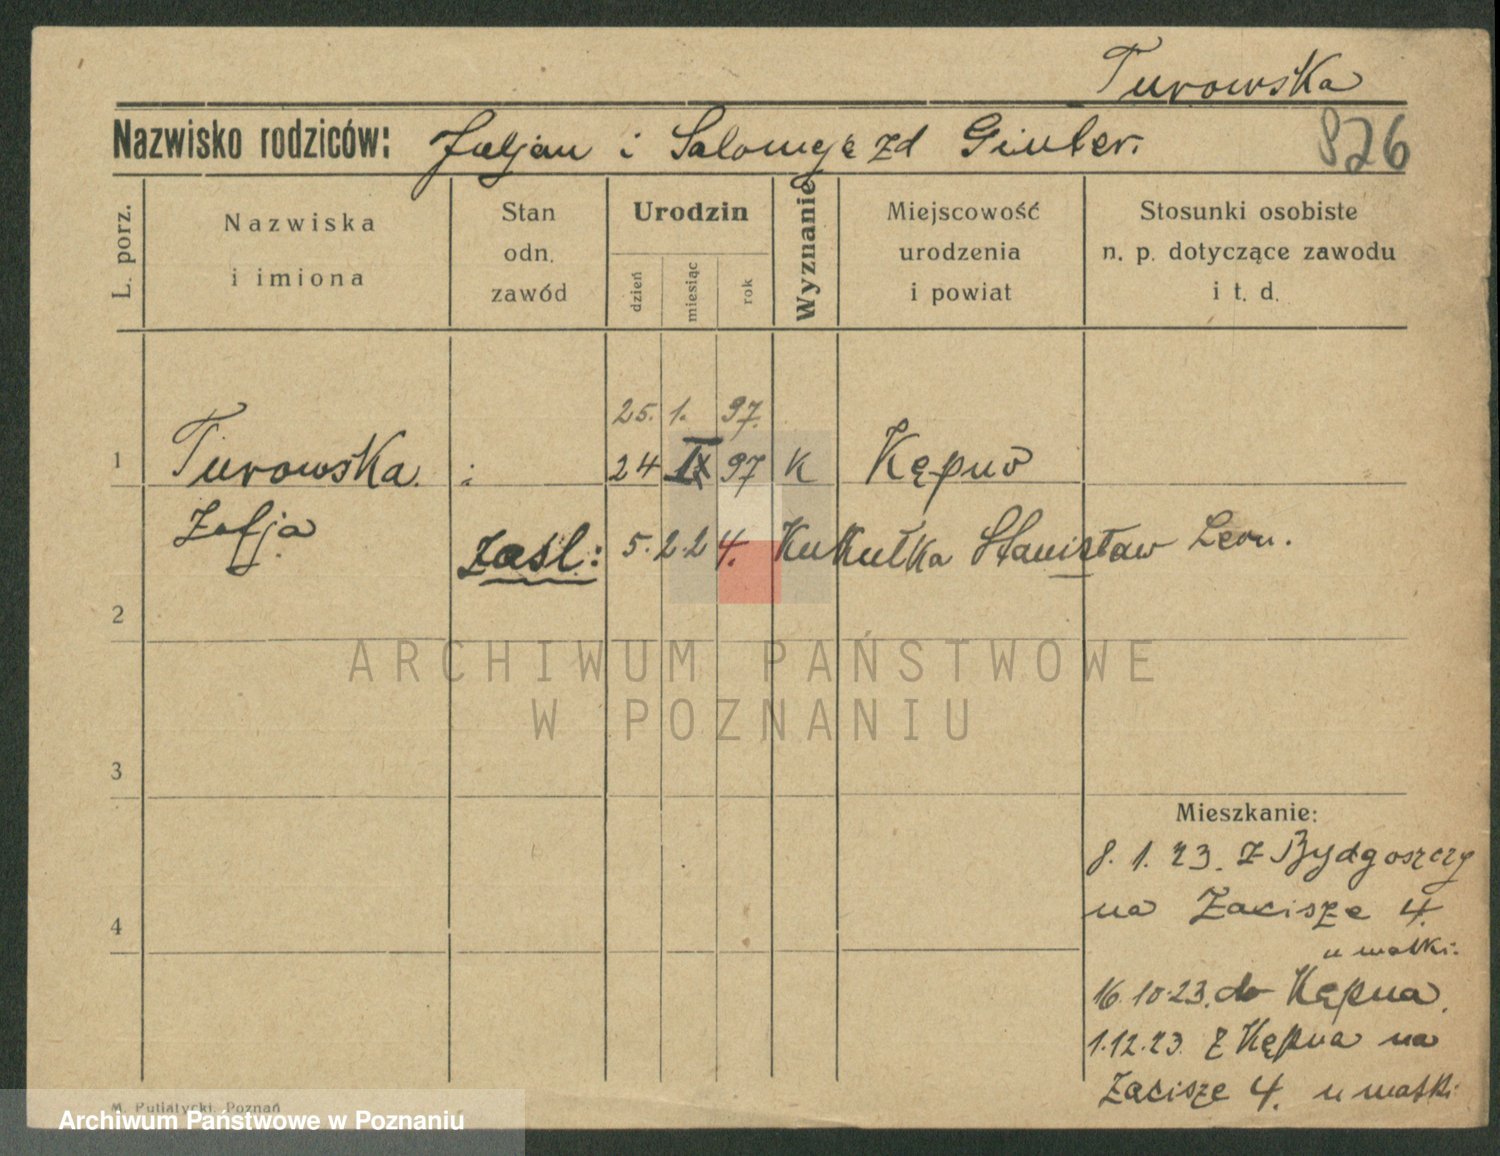 Turowska
Nazwisko rodziców: Juljan i Salomeje zd Ginter.
826
L. porz.
Nazwiska
i imiona
Stan
odn.
zawód
Urodzin
dzień
miesiąc
rok
Wyznanie
Miejscowość
urodzenia
i powiat
Stosunki osobiste
n. p. dotyczące zawodu
i t. d.
25. 1. 97.
1 Turowska. : 24 IX 97 K Kępno
Zofja
zaśl: 5.2.24. Kukułka Stanisław Leon.
2
ARCHIWUM PAŃSTWOWE
W POZNANIU
3
Mieszkanie:
8. 1. 23. z Bydgoszczy
na Zacisze 4.
4
u matki.
16.10.23. do Kępna.
1.12.23. z Kępna na
Zacisze 4. u matki
M. Putiatycki, Poznań
Archiwum Państwowe w Poznaniu